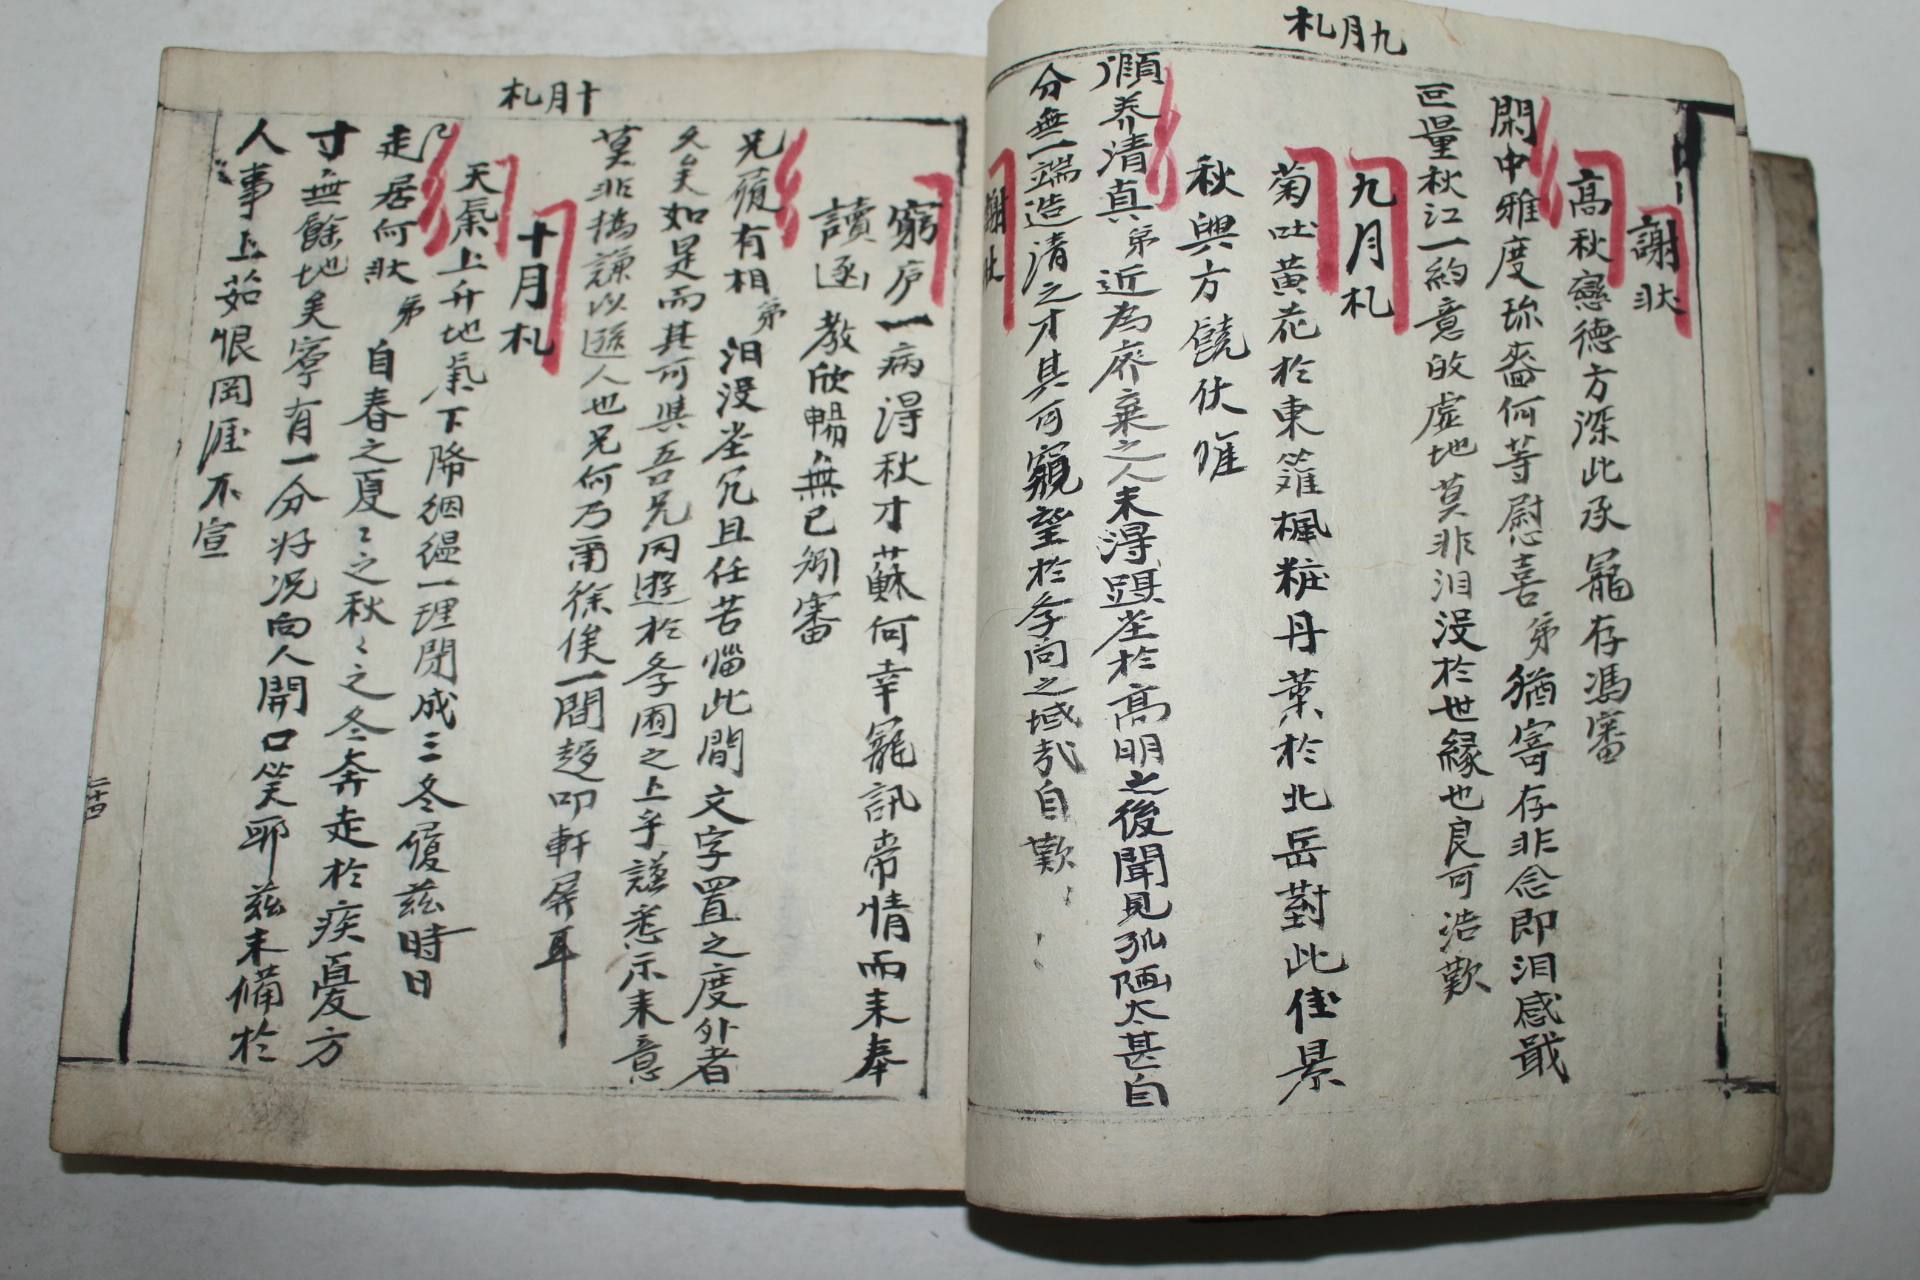 九月札
謝狀
高秋戀德方深此承寵存馮審
閑中雅度珎嗇何等慰喜弟猶寄存非念即泪感戢
叵量秋江一約意的虛地莫非泪沒於世緣也良可浩歎
九月札
菊吐黃花於東籬楓粧丹葉於北岳對此佳景
秋興方饒伏惟
頤養清真弟近為廢棄之人未得躡坐於高明之後聞見孤陋太甚自
分無一端造清之才其可窺望於李向之域哉自歎
謝狀
十月札
窮庐一病得秋才蘇何幸寵訊常情而未奉
讀逐教欣暢無已矧審
兄履有相弟汨沒坐冗且任苦惱此間文字置之度外者
久矣如是而其可與吾兄同遊於李囿之上乎謙悉示来意
莫非撝謙以遜人也兄何乃爾徐俟一間趍叩軒屛耳
十月札
天氣上升地氣下降絪縕一理閉成三冬履玆時日
走居何狀弟自春之夏〻之秋〻之冬奔走於疾憂方
寸無餘地矣寧有一分好况向人開口笑耶玆未備於
人事上茹恨罔涯不宣
二十四